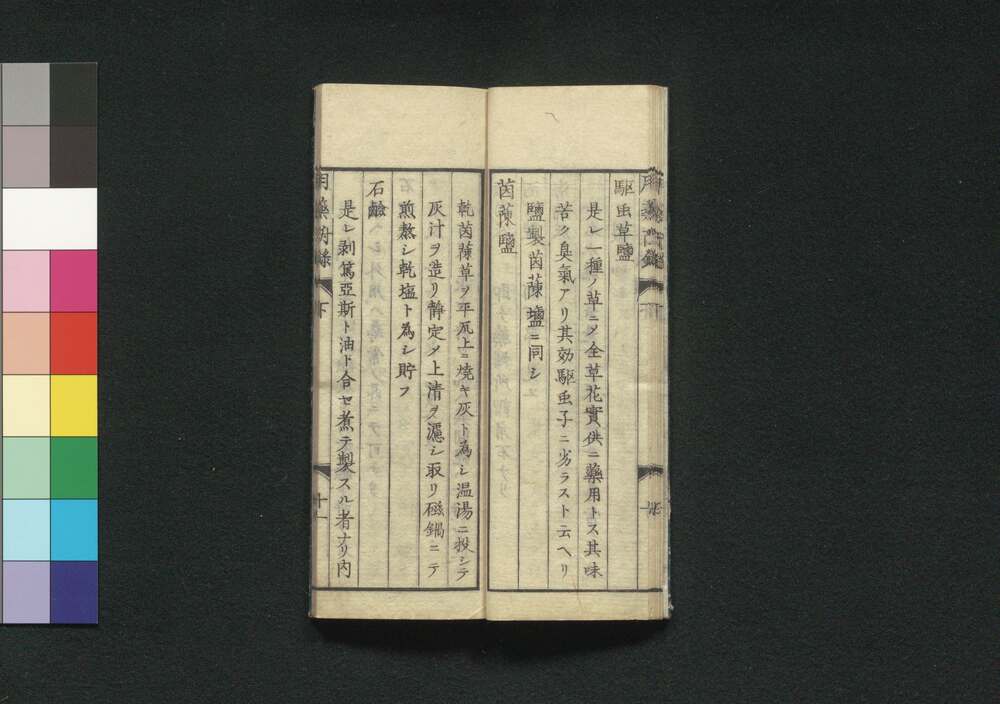 駆虫草鹽
是レ一種ノ草ニメ全草花實供ニ藥用トス其味
苦ク臭氣アリ其効駆虫子ニ劣ラスト云ヘリ
鹽製茵蔯鹽ニ同シ
茵蔯鹽
乾茵蔯草ヲ平瓦上ニ燒キ灰ト為シ温湯ニ投シテ
灰汁ヲ造リ靜定メ上清ヲ濾シ取リ磁鍋ニテ
煎熬シ乾塩ト為シ貯フ
石鹼
是レ剥篤亞斯ト油ト合セ煮テ製スル者ナリ内
下
十一